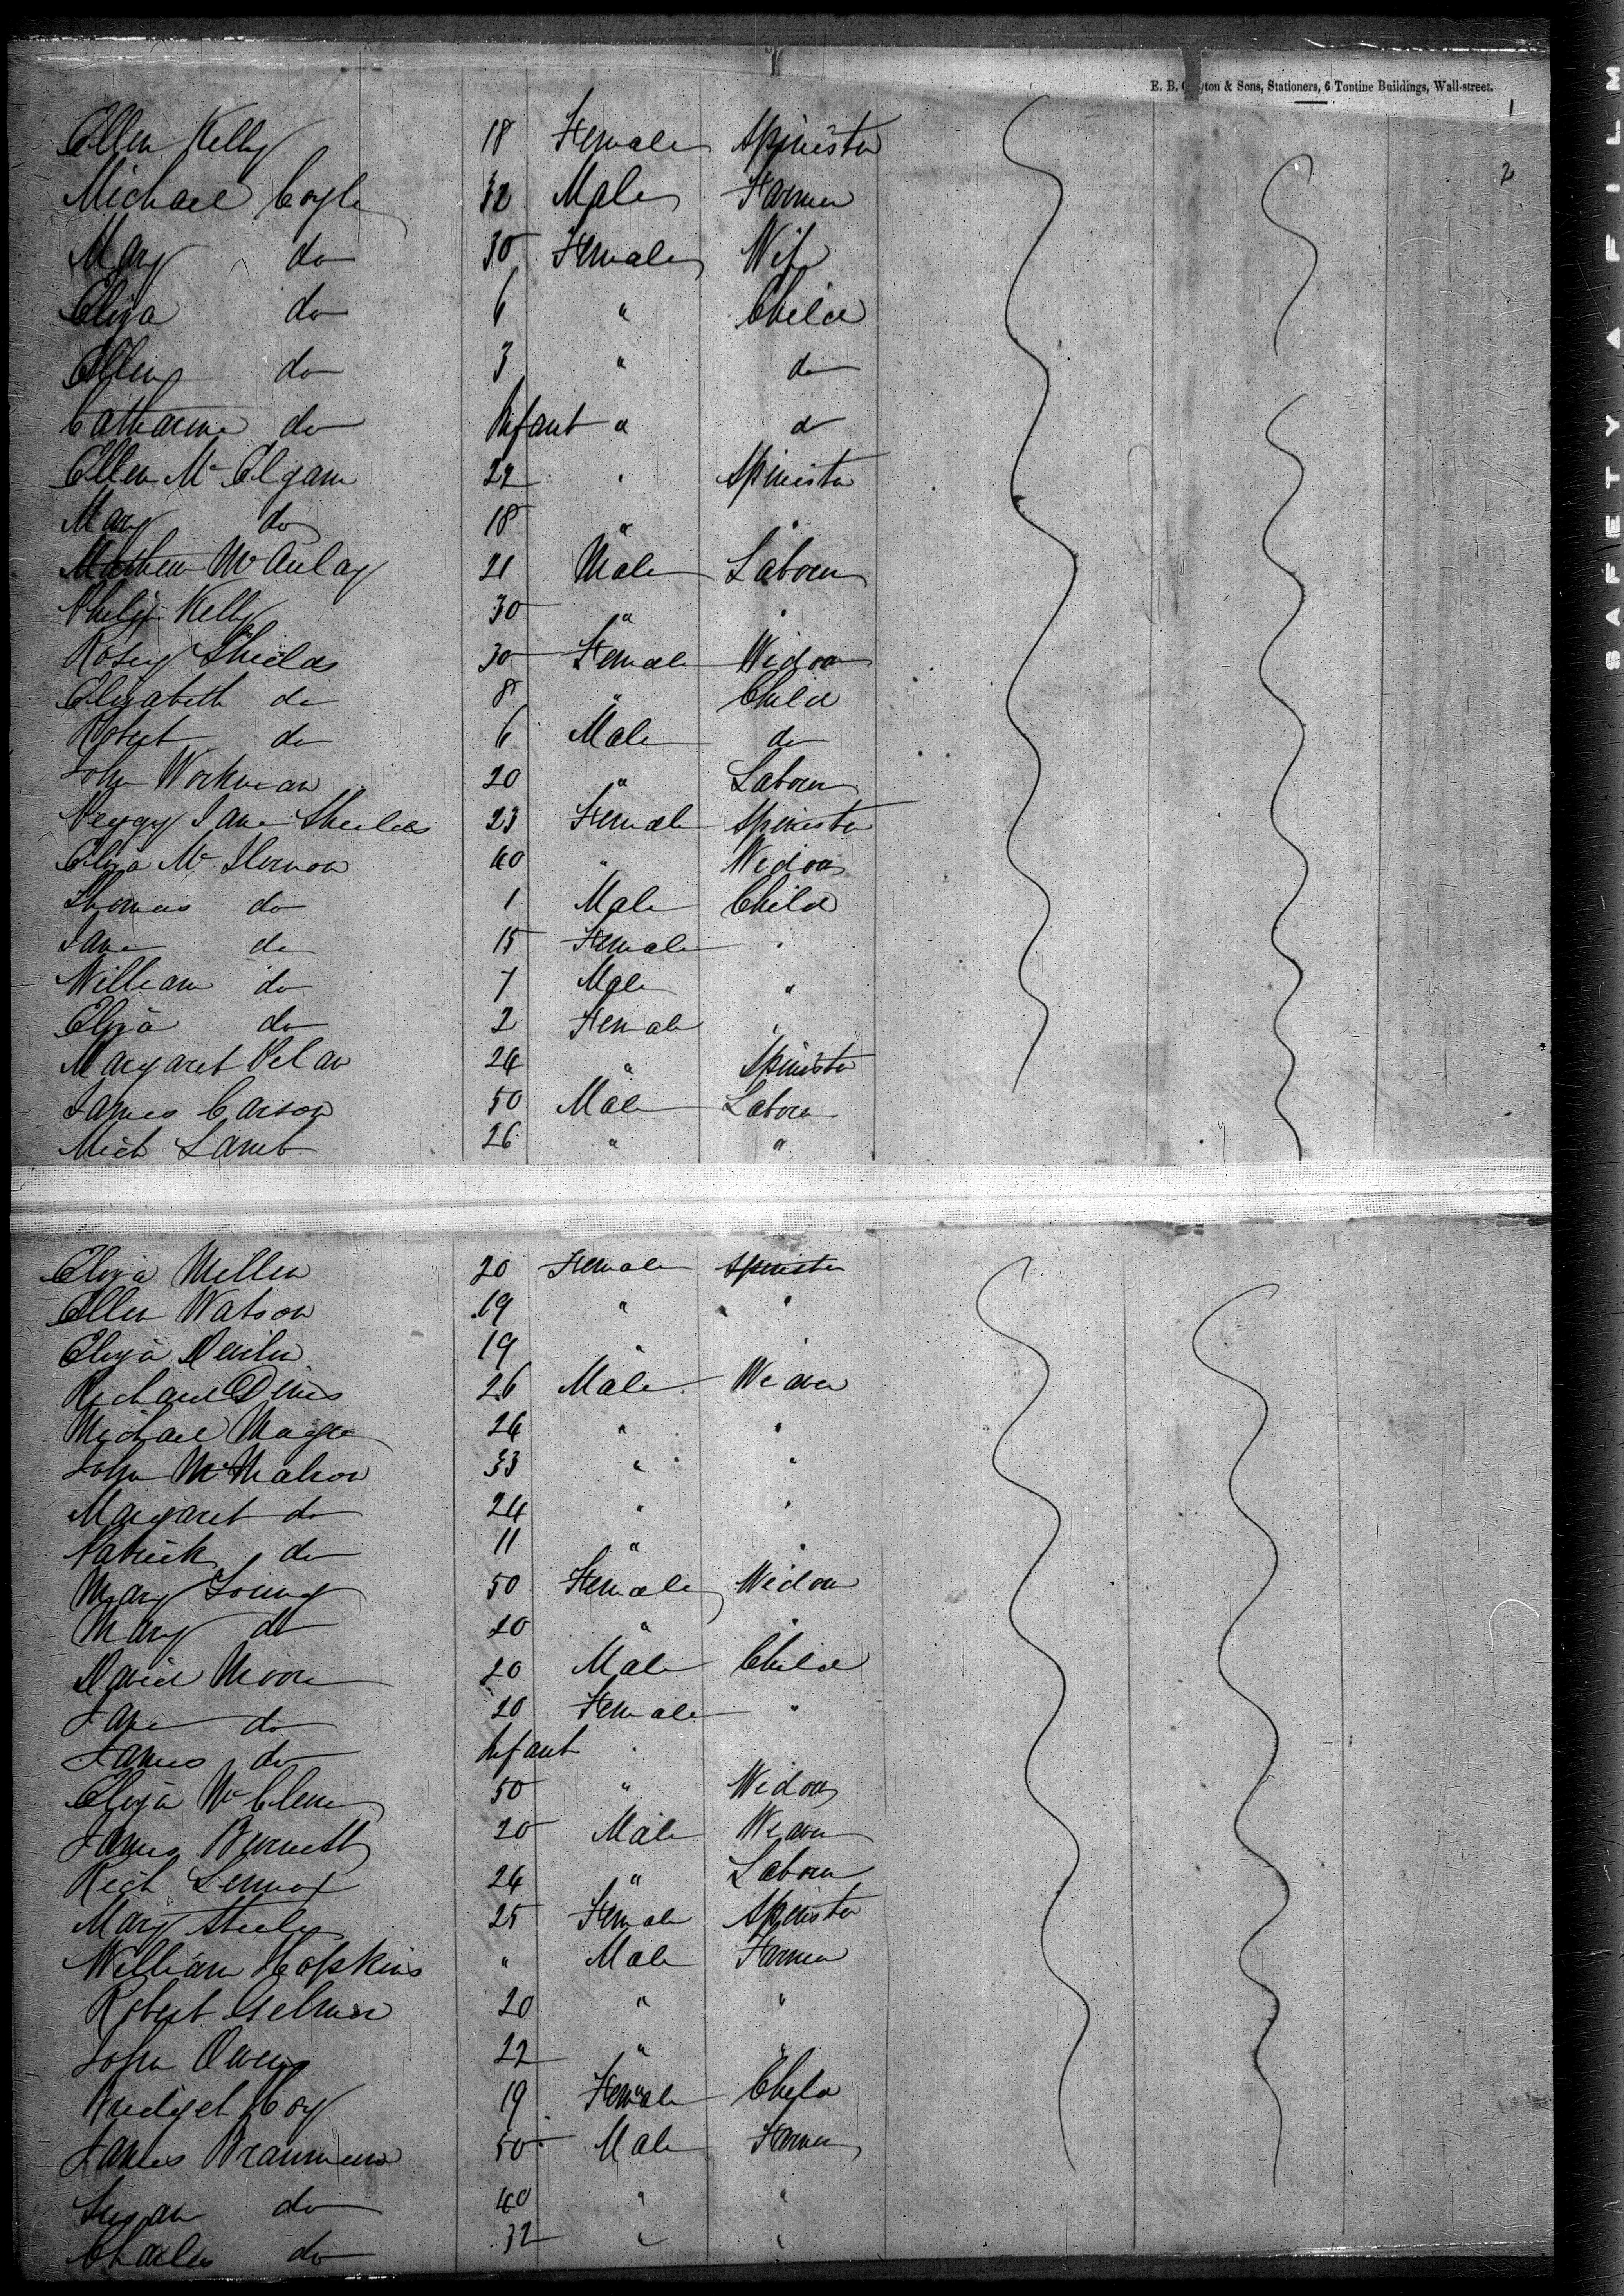 E. B. C yton & Sons, Stationers, 6 Tontine Buildings, Wall-street.
1
Ellen Kelly 18 Female Spinster
2
Michael Coyle 32 Male Farmer
Mary do 30 Female Wife
Eliza do 6 " Child
Ellen do 3 " do
Catharine do Infant " do
Ellen Mc Elgam 22 " Spinster
Mary do 18 " "
Mathew McAulay 21 Male Laborer
Philip Kelly 30 " "
Rosey Shields 30 Female Widow
Elizabeth do 8 " Child
Robert do 6 Male do
John Workman 20 " Laborer
Peggy Jane Sheilds 23 Female Spinster
Eliza Mc 40 " Widow
Thomas do 1 Male Child
Jane do 15 Female "
William do 7 Male "
Eliza do 2 Female "
Margaret Pelan 24 " Spinster
James Carson 50 Male Laborer
Mich Lamb 26 " "
Eliza Millen 20 Female Spinster
Ellen Watson 19 " "
Eliza Devlin 19 " "
Richard 26 Male Weaver
Michael Magee 24 " "
John McMahon 33 " "
Margaret do 24 " "
Patrick do 11 " "
Mary Young 50 Female Widow
Mary do 20 " "
David Moore 20 Male Child
Jane do 20 Female "
James do Infant "
Eliza Mc 50 " Widow
James Burnett 20 Male Weaver
Rich Lennox 24 " Laborer
Mary 25 Female Spinster
William Hopkins " Male Farmer
Robert Gelmer 20 " "
John Owens 22 " "
Bridget Coy 19 Female Child
James 50 Male Farmer
Susan do 40 " "
Charles do 32 " "
SAFETY A FILM